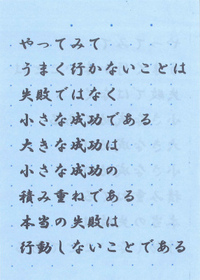 やってみて
うまく行かないことは
失敗ではなく
小さな成功である
大きな成功は
小さな成功の
積み重ねである
本当の失敗は
行動しないことである